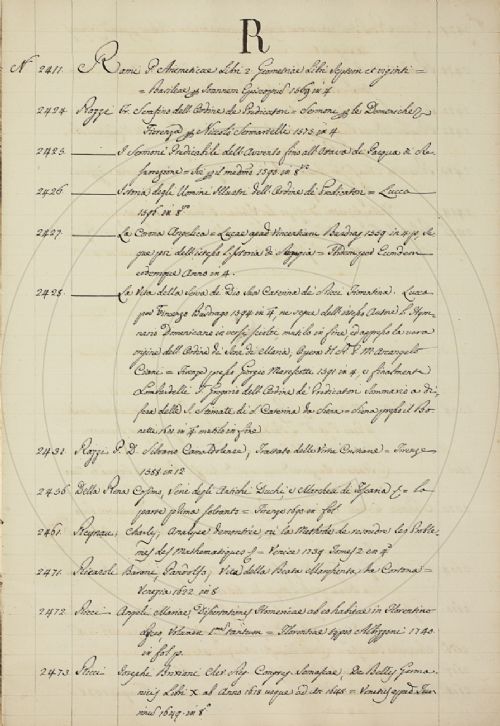 R
N° 2411. Rami P. Aritmeticae Libri 2 Geometriae Libri Septem et viginti =
= Basileae per Joannem Episcopium 1569 in 4
2424 Razzi Fr. Serafino dell'Ordine de Predicatori = Sermone per le Domeniche
Fiorenza per Niccolò 1575 in 4
2425 I Sermoni Predicabili dell'Avvento fino all'Ottava de Pasqua di Re-
surrezione = per il medmo 1590 in 8
2426 Istoria degli Uomini Illustri dell'Ordine de Predicatori = Lucca
1596 in 8
2427 La Corona Angelica = Lucae apud Vincentium 1599 in 4 Se
gue per dell'istesso Historia di = per Eundem
eodemque Anno in 4.
2428 La Vita della Serva di Dio Suor Caterina de Ricci Fiorentina. Lucca
per Vincenzo Busdrago 1594 in 4 ne segue dell'istesso Autre L'Hym-
nario Domenicano in versi mutilo in fine, ed appresso la vera
origine dell'Ordine di Servi di Maria, Opera M. Arcangelo
Ciani = Firenze presso Giorgio Marescotti 1591 in 4, e finalmente
Lombardelli F. Gregorio dell'Ordine de Predicatori Sommario a di-
fesa delle S. Stimate di S. Caterina da Siena = Siena presso il Bo-
netti 1601 in 4 mutilo in fine
2431 Razzi P. D. Silvano Camaldolense, Trattato delle Virtù Cristiane = Firenze
1588 in 12
2436 Della Rena Cosimo, Serie degli Antichi Duchi e Marchesi di Toscana = la
parte prima solamte = Firenze 1690 in fol.
2461 Reyneau, Charles, Analyse Demontrée, ou la Methode de resoudre les Proble-
mes des Mathematiques = Venice 1739 Tomes 2 en 4
2471 Ricasoli Barone, Pandolfo, Vita della Beata Margherita, da Cortona =
Venezia 1622 in 8
2472 Ricci Angeli Mariae, Dissertationes Homericae ab eo habitae in Florentino
Lyceo, Volumen 1mum tantum = Florentiae typis Albizzini 1740
in fol.
2473 Ricci Josephi Brixiani Cler. Reg. Congreg. Somaschae, De Bellis Germa-
nicis Libri X ab Anno 1618 usque ad An 1648 = Venetiis apud Tur-
rinum 1649 in 8